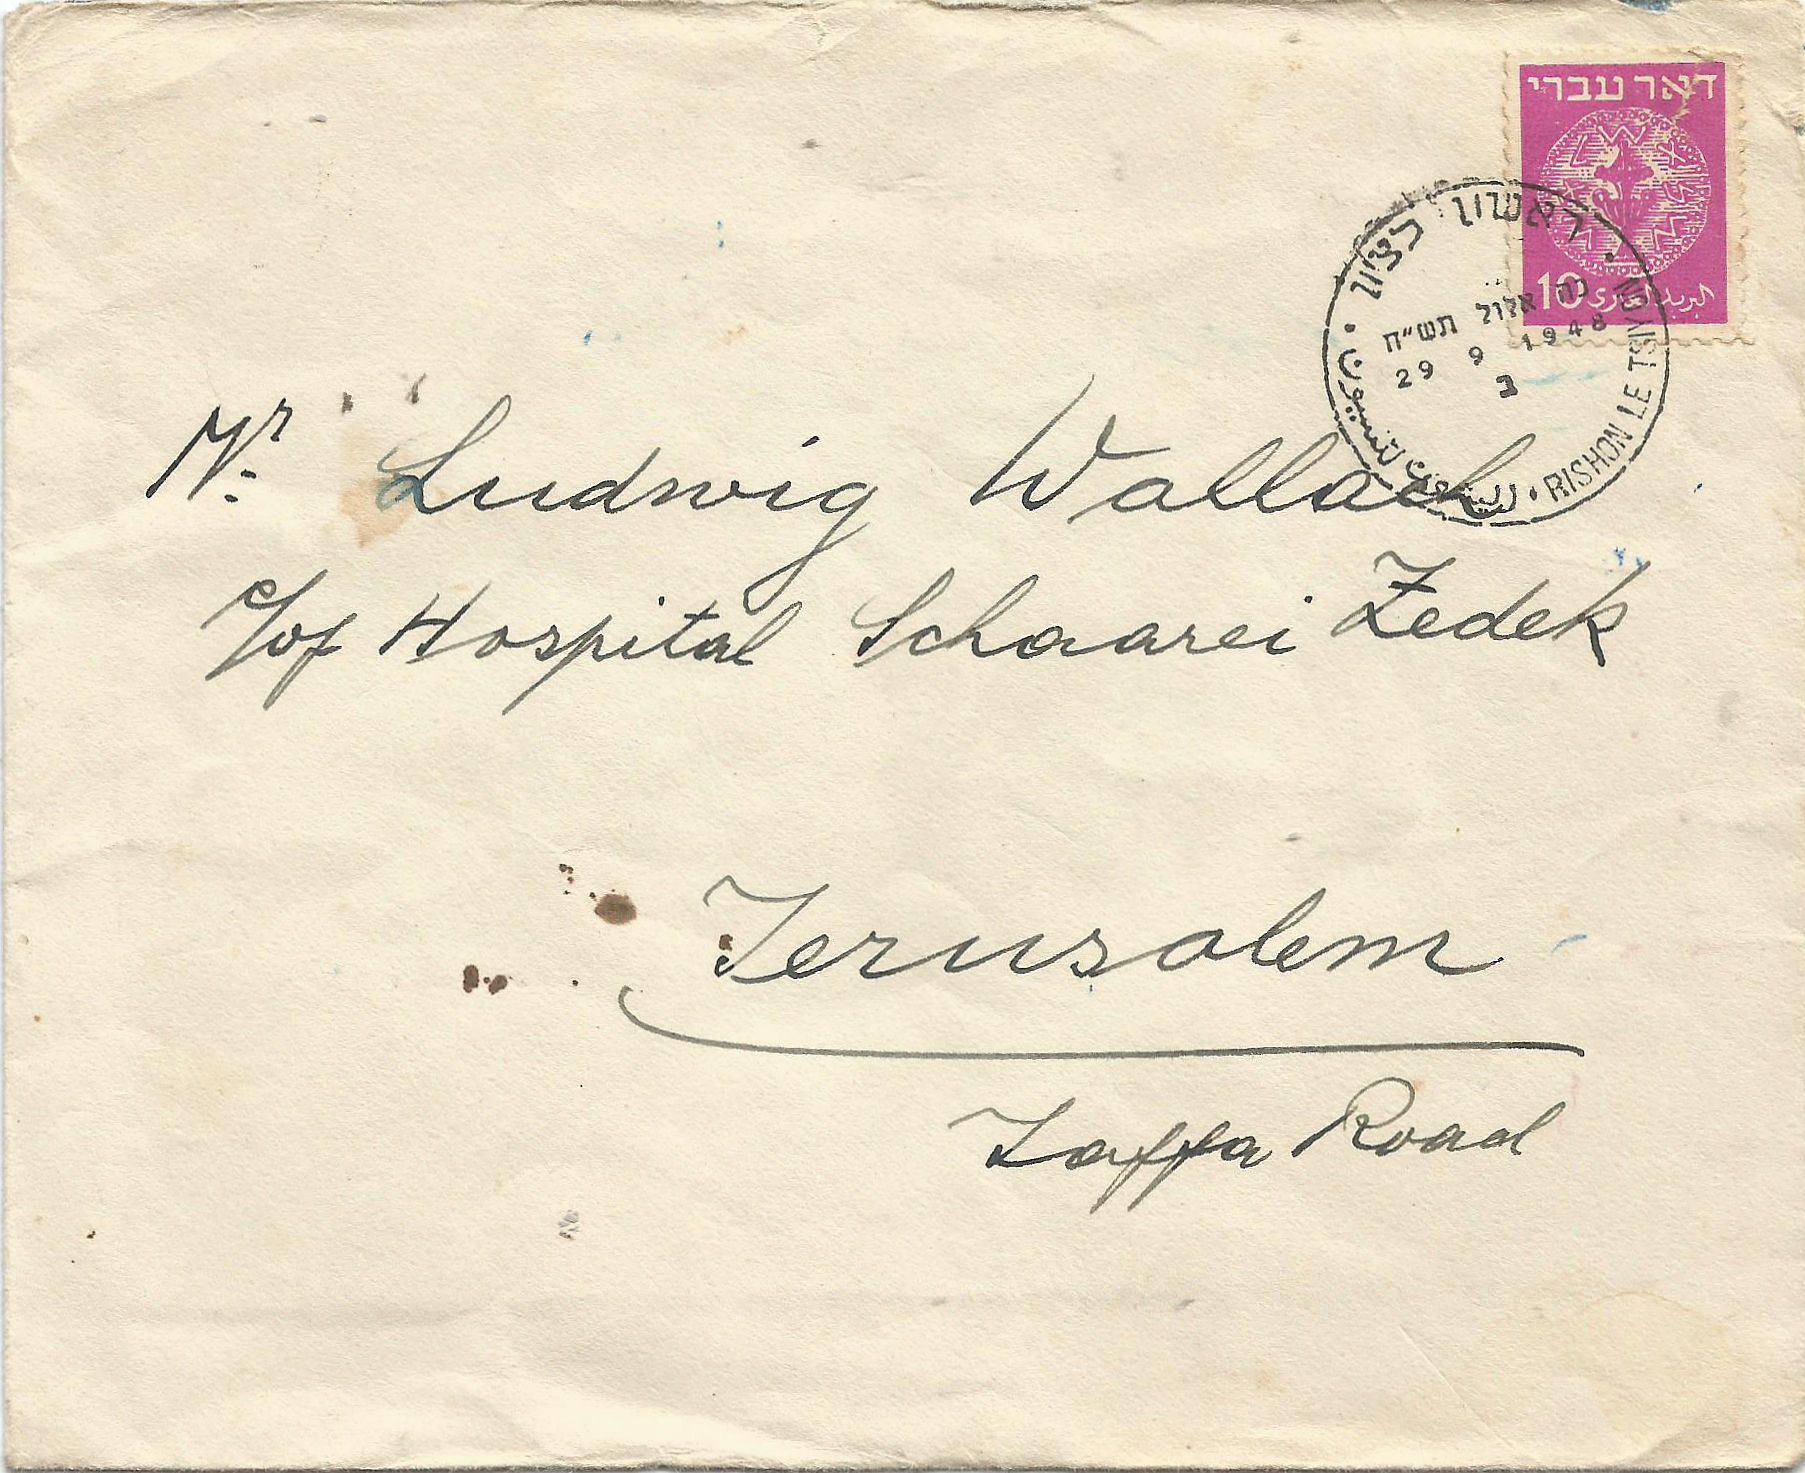 דאר עברי
10 البريد العبري
ראשון לציון
כה אלול תש״ח
29 9 1948
ב
RISHON LE TSIYON
Mr. Ludwig Wallach
c/of Hospital Schaarei Zedek
Jerusalem
Jaffa Road